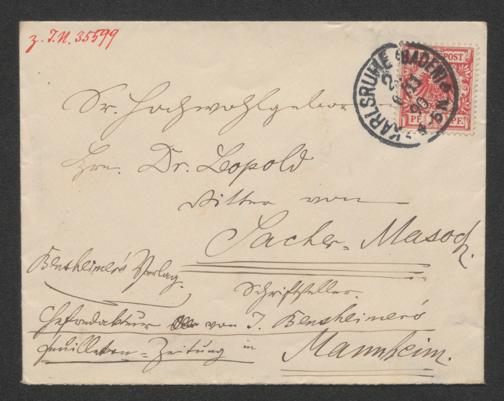 z. I.N. 35599
KARLSRUHE (BADEN)
Sr. Hochwohlgebor
Hrn. Dr. Leopold
Ritter von
Sacher-Masoch.
Bensheimer's Verlag.
Schriftsteller.
Chefredakteur von J. Bensheimer's
Feuilleton-Zeitung in
Mannheim.